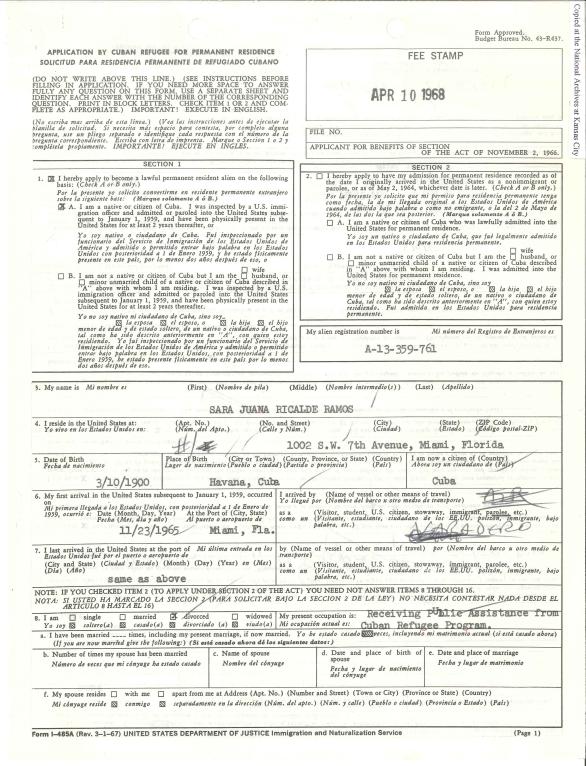 Copied at the National Archives at Kansas City
Form Approved.
Budget Bureau No. 43-R437.
APPLICATION BY CUBAN REFUGEE FOR PERMANENT RESIDENCE
SOLICITUD PARA RESIDENCIA PERMANENTE DE REFUGIADO CUBANO
(DO NOT WRITE ABOVE THIS LINE.) (SEE INSTRUCTIONS BEFORE
FILLING IN APPLICATION. IF YOU NEED MORE SPACE TO ANSWER
FULLY ANY QUESTION ON THIS FORM, USE A SEPARATE SHEET AND
IDENTIFY EACH ANSWER WITH THE NUMBER OF THE CORRESPONDING
QUESTION. PRINT IN BLOCK LETTERS. CHECK ITEM 1 OR 2 AND COM-
PLETE AS APPROPRIATE.) IMPORTANT! EXECUTE IN ENGLISH.
(No escriba mas arriba de esta linea.) (Vea las instrucciones antes de ejecutar la
blanilla de solicitud. Si necesita más espacio para contesta, por completo alguna
pregunta, use un pliego separado e identifique cada respuesta con el número de la
pregunta correspondiente. Escriba con letra de imprenta. Marque o Sección 1 o 2 y
complétela propiamente. IMPORTANTE! EJECUTE EN INGLES.
FEE STAMP
APR 10 1968
FILE NO.
APPLICANT FOR BENEFITS OF SECTION
OF THE ACT OF NOVEMBER 2, 1966.
SECTION 1
1. I hereby apply to become a lawful permanent resident alien on the following
basis: (Check A or B only.)
Por la presente yo solicito convertirme en residente permanente extranjero
sobre la siguiente base: (Marque solamente A ó B.)
A. I am a native or citizen of Cuba. I was inspected by a U.S. immi-
gration officer and admitted or paroled into the United States subse-
quent to January 1, 1959, and have been physically present in the
United States for at least 2 years thereafter, or
Yo soy nativo o ciudadano de Cuba. Fui inspeccionado por un
funcionario del Servicio de Inmigración de los Estados Unidos de
América y admitido o permitido entrar bajo palabra en los Estados
Unidos con posterioridad a 1 de Enero 1959, y he estado físicamente
presente en este país, por lo menos dos años después de eso, o
B. I am not a native or citizen of Cuba but I am the wife
husband, or
minor unmarried child of a native or citizen of Cuba described in
"A" above with whom I am residing. I was inspected by a U.S.
immigration officer and admitted or paroled into the United States
subsequent to January 1, 1959, and have been physically present in the
United States for at least 2 years thereafter.
Yo no soy nativo ni ciudadano de Cuba, sino soy
la esposa el esposo, o la hija el hijo
menor de edad y de estado soltero, de un nativo o ciudadano de Cuba,
tal como ha sido descrito anteriormente en "A", con quien estoy
residiendo. Yo fui inspeccionado por un funcionario del Servicio de
Inmigración de los Estados Unidos de América y admitido o permitido
entrar bajo palabra en los Estados Unidos, con posterioridad a 1 de Enero
1959, he estado presente físicamente en este país por lo menos
dos años después de eso.
SECTION 2
2. I hereby apply to have my admission for permanent residence recorded as of
the date I originally arrived in the United States as a nonimmigrant or
parolee, or as of May 2, 1964, whichever date is later. (Check A or B only.)
Por la presente yo solicito que mi permiso para residencia permanente tenga
como fecha, la de mi llegada original a los Estados Unidos de América
cuando admitido bajo palabra o como no emigrante, o la del 2 de Mayo de
1964, de las dos la que sea posterior. (Marque solamente A ó B.)
A. I am a native or citizen of Cuba who was lawfully admitted to the
United States for permanent residence.
Yo soy un nativo o ciudadano de Cuba, que fui legalmente admitido
en los Estados Unidos para residencia permanente.
B. I am not a native or citizen of Cuba but I am the wife
husband, or
minor unmarried child of a native or citizen of Cuba described
in "A" above with whom I am residing. I was admitted into the
United States for permanent residence.
Yo no soy nativo ni ciudadano de Cuba, sino soy
la esposa el esposo, o la hija el hijo
menor de edad y de estado soltero, de un nativo o ciudadano de Cuba,
tal como ha sido descrito anteriormente en "A", con quien estoy
residiendo. Fui admitido en los Estados Unidos para residencia
permanente.
My alien registration number is Mi número del Registro de Extranjeros es
A-13-359-761
3. My name is Mi nombre es (First) (Nombre de pila) (Middle) (Nombre intermedio(s)) (Last) (Apellido)
SARA JUANA RICALDE RAMOS
4. I reside in the United States at: (Apt. No.) (No. and Street) (City) (State) (ZIP Code)
Yo vivo en los Estados Unidos en: (Núm. del Apto.) (Calle y Núm.) (Ciudad) (Estado) (Código postal-ZIP)
1002 S.W. 7th Avenue, Miami, Florida
5. Date of Birth Place of Birth (City or Town) (County, Province, or State) (Country) I am now a citizen of (Country)
Fecha de nacimiento Lugar de nacimiento (Pueblo o ciudad) (Partido o provincia) (País) Ahora soy un ciudadano de (País)
3/10/1900 Havana, Cuba Cuba
6. My first arrival in the United States subsequent to January 1, 1959, occurred
on
Mi primera llegada a los Estados Unidos, con posterioridad a 1 de Enero de
1959, ocurrió e: Date (Month, Day, Year) At the Port of (City, State)
Fecha (Mes, día y año) Al puerto o aeropuerto de
11/23/1965 Miami, Fla.
I arrived by (Name of vessel or other means of travel)
Yo llegué por (Nombre del barco u otro medio de transporte)
AIR
as a (Visitor, student, U.S. citizen, stowaway, immigrant, parolee, etc.)
como un (Visitante, estudiante, ciudadano de los EE.UU. polizón, inmigrante, bajo
palabra, etc.)
VARADERO
7. I last arrived in the United States at the port of Mi última entrada en los
Estados Unidos fué por el puerto o aeropuerto de
(City and State) (Ciudad y Estado) (Month) (Day) (Year) en (Mes)
(Día) (Año)
same as above
by (Name of vessel or other means of travel) por (Nombre del barco u otro medio de
transporte)
as a (Visitor, student, U.S. citizen, stowaway, immigrant, parolee, etc.)
como un (Visitante, estudiante, ciudadano de los EE.UU. polizón, inmigrante, bajo
palabra, etc.)
NOTE: IF YOU CHECKED ITEM 2 (TO APPLY UNDER SECTION 2 OF THE ACT) YOU NEED NOT ANSWER ITEMS 8 THROUGH 16.
NOTA: SI USTED HA MARCADO LA SECCION 2 (PARA SOLICITAR BAJO LA SECCION 2 DE LA LEY) NO NECESITA CONTESTAR NADA DESDE EL
ARTICULO 8 HASTA EL 16)
8. I am single married divorced widowed
Yo soy soltero(a) casado(a) divorciado(a) viudo(a)
My present occupation is: Receiving Public Assistance from
Mi ocupación actual es: Cuban Refugee Program.
a. I have been married times, including my present marriage, if now married. Yo he estado casado veces, incluyendo mi matrimonio actual (si está casado ahora)
(If you are now married give the following:) (Si está casado ahora dé los siguientes datos:)
b. Number of times my spouse has been married
Número de veces que mi cónyuge ha estado casado
c. Name of spouse
Nombre del cónyuge
d. Date and place of birth of
spouse
Fecha y lugar de nacimiento
del cónyuge
e. Date and place of marriage
Fecha y lugar de matrimonio
f. My spouse resides with me apart from me at Address (Apt. No.) (Number and Street) (Town or City) (Province or State) (Country)
Mi cónyuge reside conmigo separadamente en la dirección (Núm. del apto.) (Núm. y calle) (Pueblo o ciudad) (Provincia o Estado) (País)
Form I-485A (Rev. 3-1-67) UNITED STATES DEPARTMENT OF JUSTICE Immigration and Naturalization Service (Page 1)